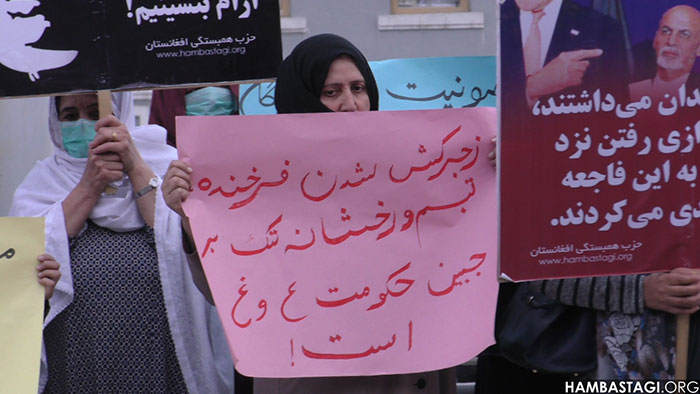 آرام بنشینیم!
حزب همبستگی افغانستان
www.hambastagi.org
زجرکش شدن فرخنده
تبسم و رخشانه تک بر
جبین حکومت ع و غ
است!
دان می‌داشتند،
ازی رفتن نزد
به این فاجعه
ی می‌کردند.
حزب همبستگی افغانستان
www.hambastagi.org
HAMBASTAGI.ORG